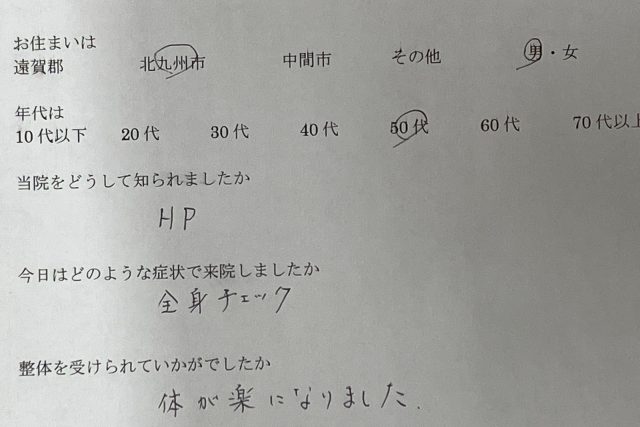 お住まいは
遠賀郡 北九州市 中間市 その他 男・女
年代は
10代以下 20代 30代 40代 50代 60代 70代以上
当院をどうして知られましたか
HP
今日はどのような症状で来院しましたか
全身チェック
整体を受けられていかがでしたか
体が楽になりました.